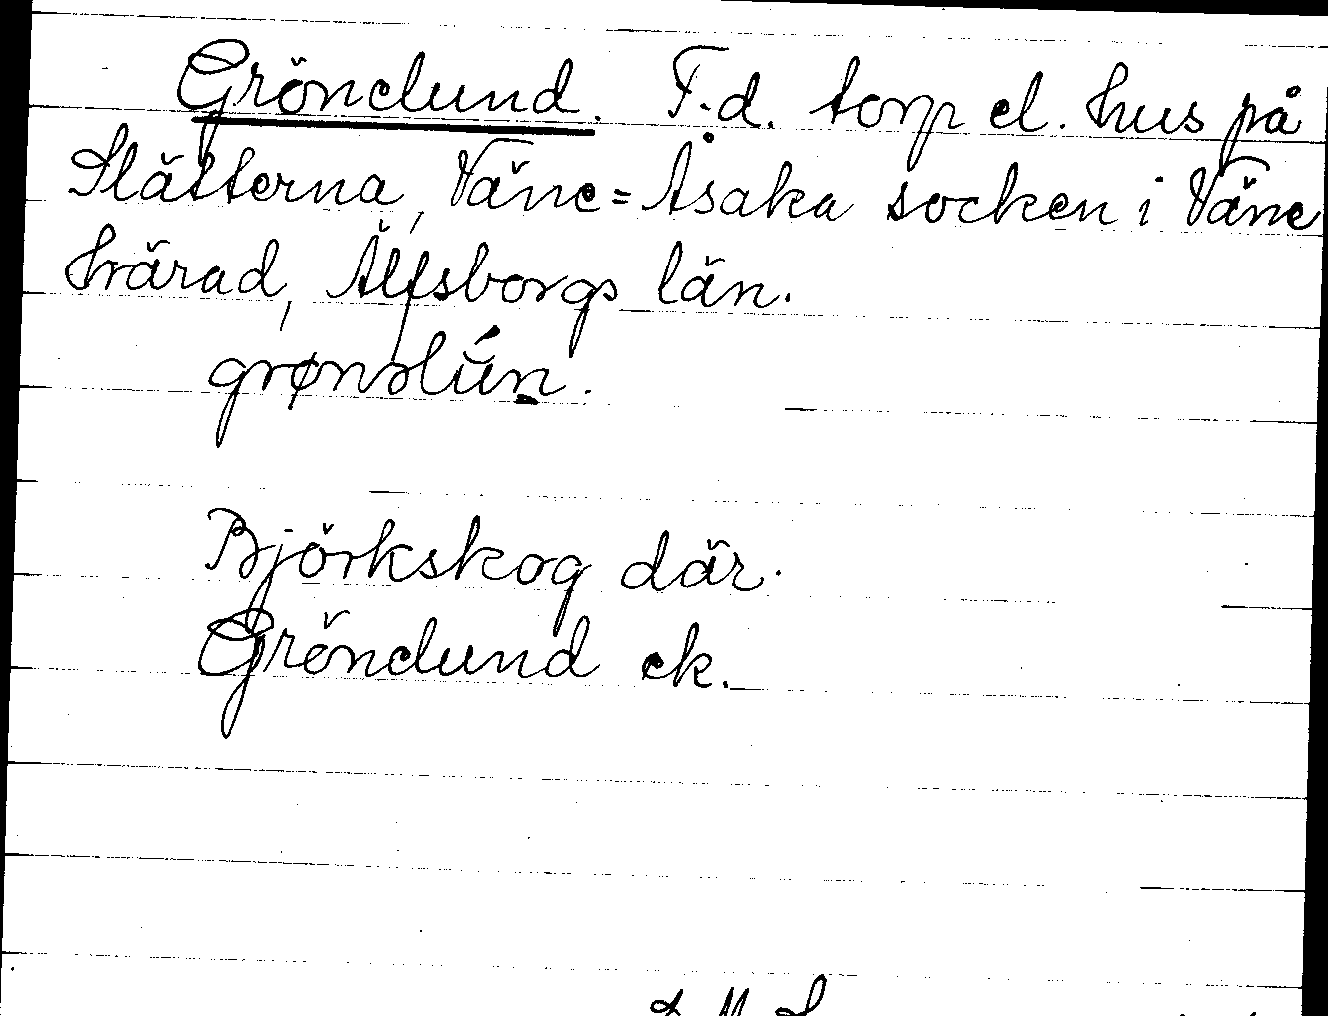 Grönelund. F.d. torp el. hus på
Slätterna, Väne=Åsaka socken i Väne
härad, Älfsborgs län.
Björkskog där.
Grönelund ek.